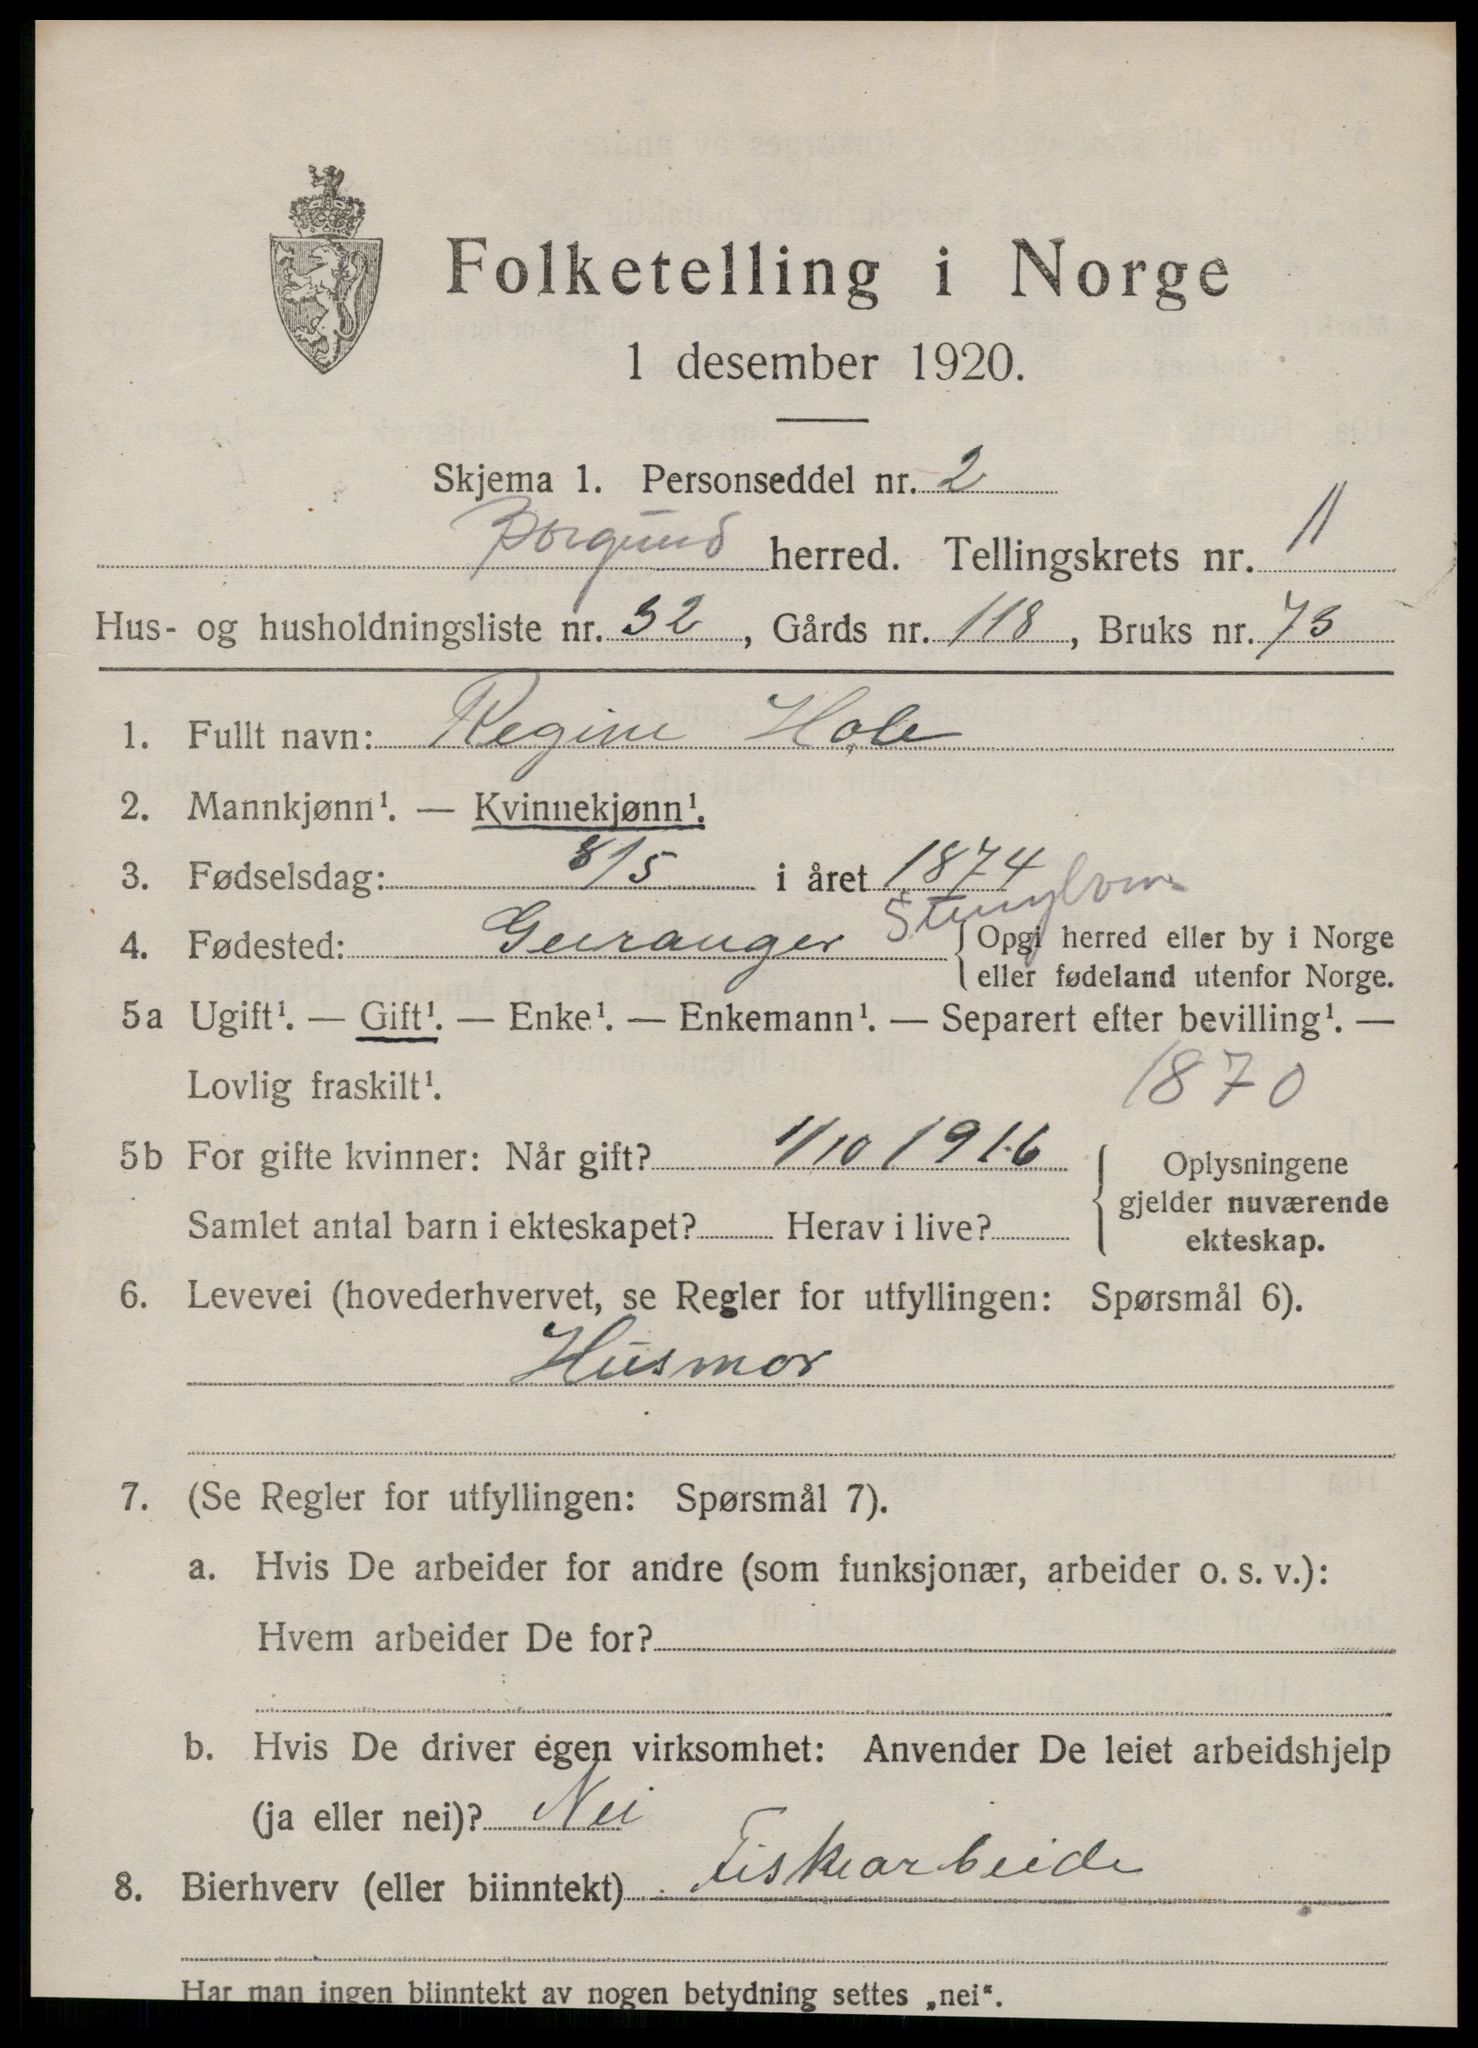 Folketelling i Norge
1 desember 1920.
Skjema 1. Personseddel nr. 2
Borgund herred. Tellingskrets nr. 11
Hus- og husholdningsliste nr. 32, Gårds nr. 118, Bruks nr. 73
1. Fullt navn: Regine Hole
2. Mannkjønn¹. — Kvinnekjønn¹.
3. Fødselsdag: 8/5 i året 1874
4. Fødested: Geiranger {Opgi herred eller by i Norge
eller fødeland utenfor Norge.
5a Ugift¹. — Gift¹. — Enke¹. — Enkemann¹. — Separert efter bevilling¹. —
Lovlig fraskilt¹. 1870
5b For gifte kvinner: Når gift? 1/10 1916
Samlet antal barn i ekteskapet? Herav i live?
Oplysningene
gjelder nuværende
ekteskap.
6. Levevei (hovederhvervet, se Regler for utfyllingen: Spørsmål 6).
Husmor
7. (Se Regler for utfyllingen: Spørsmål 7).
a. Hvis De arbeider for andre (som funksjonær, arbeider o. s. v.):
Hvem arbeider De for?
b. Hvis De driver egen virksomhet: Anvender De leiet arbeidshjelp
(ja eller nei)? Nei
8. Bierhverv (eller biinntekt) Fiskearbeide
Har man ingen biinntekt av nogen betydning settes „nei“.